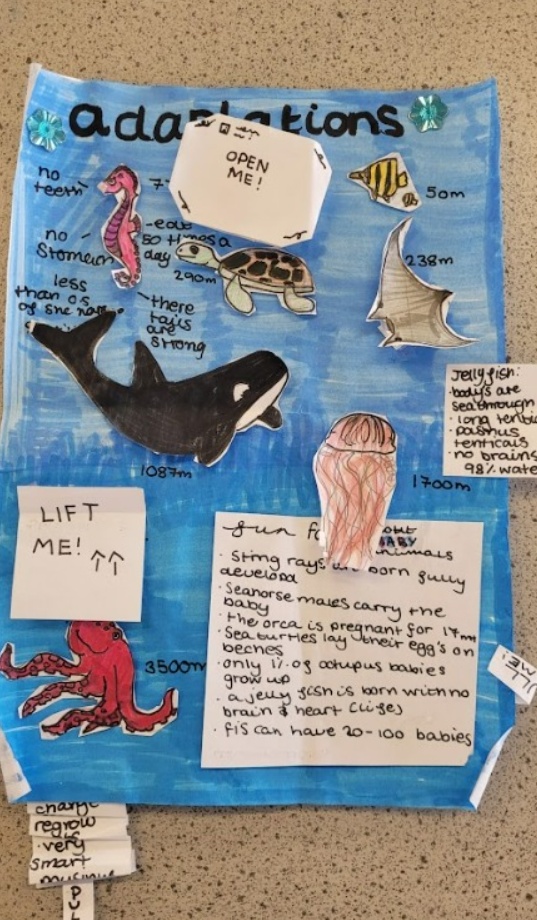 adaptations
OPEN
ME!
no
teeth
7
50m
no
Stomach
-eat
50 times a
day
290m
238m
less
than 0.5
of the
there
tails
are
strong
1087m
Jellyfish:
bodys are
seathrough
long
tenticals
no brains
98% wate
1700m
LIFT
ME! ↑↑
fun
BABY
animals
· Sting rays are born fully
develoed
· Seahorse males carry the
baby
· the orca is pregnant for 17m
· Sea turtles lay their egg's on
beches
· only 1% of octupus babies
grow up
· a jelly fish is born with no
brain & heart (life)
· fis can have 20-100 babies
3500m
change
regrow
· very
smart
PUL